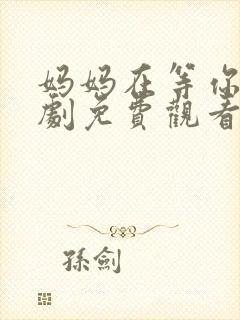 妈妈在等你
劇免費觀看
孫劍